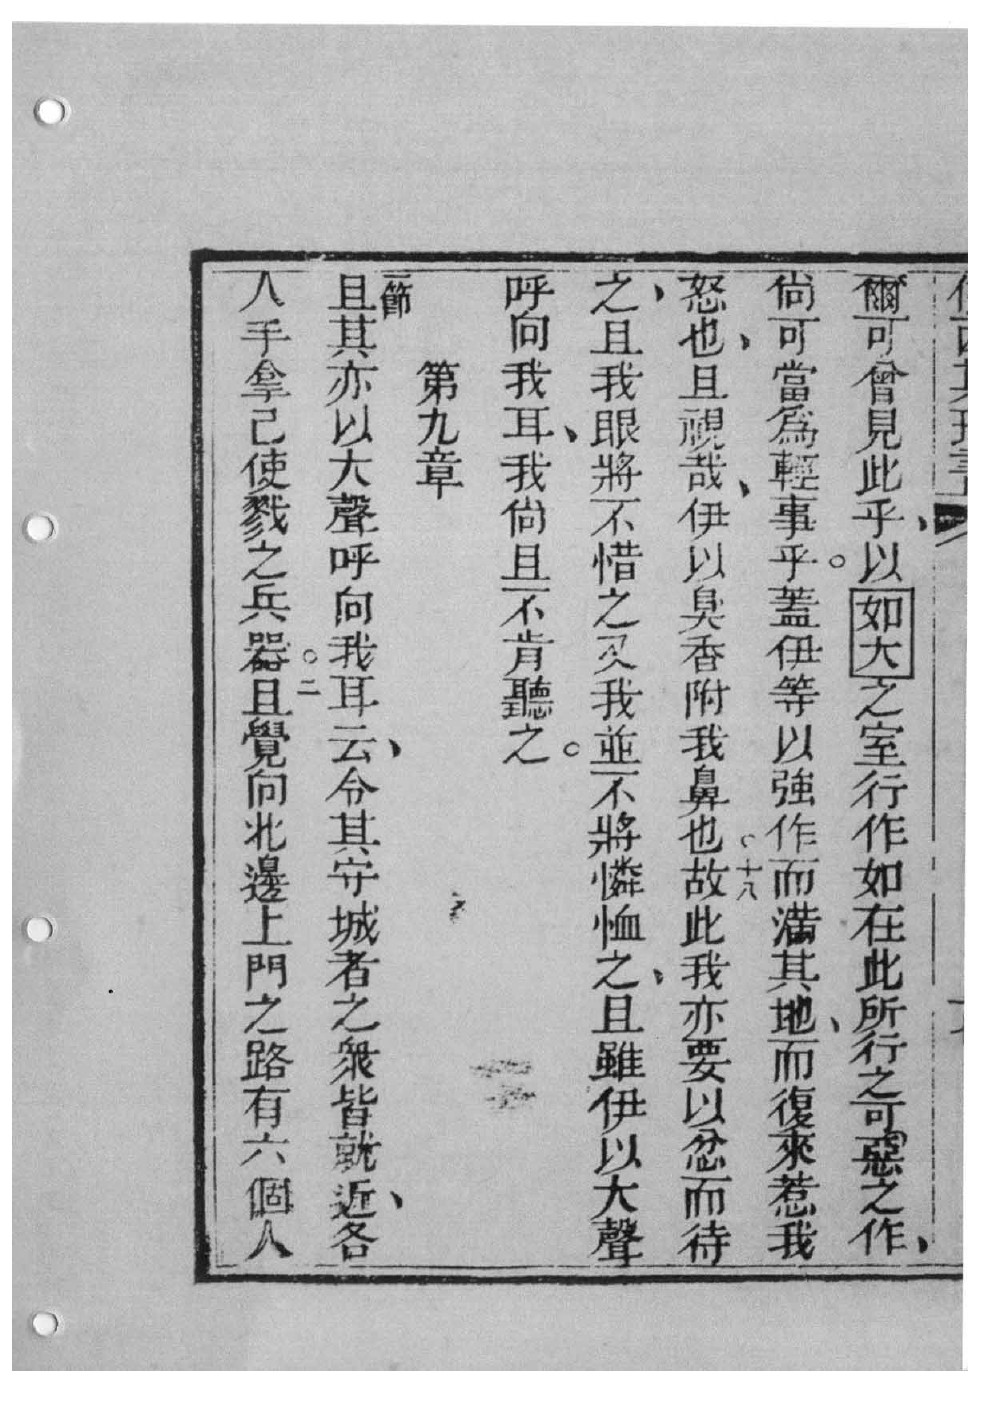 爾可曾見此乎、以如大之室行作如在此所行之可惡之作、
尙可當爲輕事乎。蓋伊等以強作而滿其地、而復來惹我
怒也、且視哉、伊以臭香附我鼻也。十八故此我亦要以忿而待
之、且我眼將不惜之又我並不將憐恤之、且雖伊以大聲
呼向我耳、我尙且不肯聽之。
第九章
一節且其亦以大聲呼向我耳云、令其守城者之衆皆就近、各
人手拿己使戮之兵器。二且覺向北邊上門之路有六個人